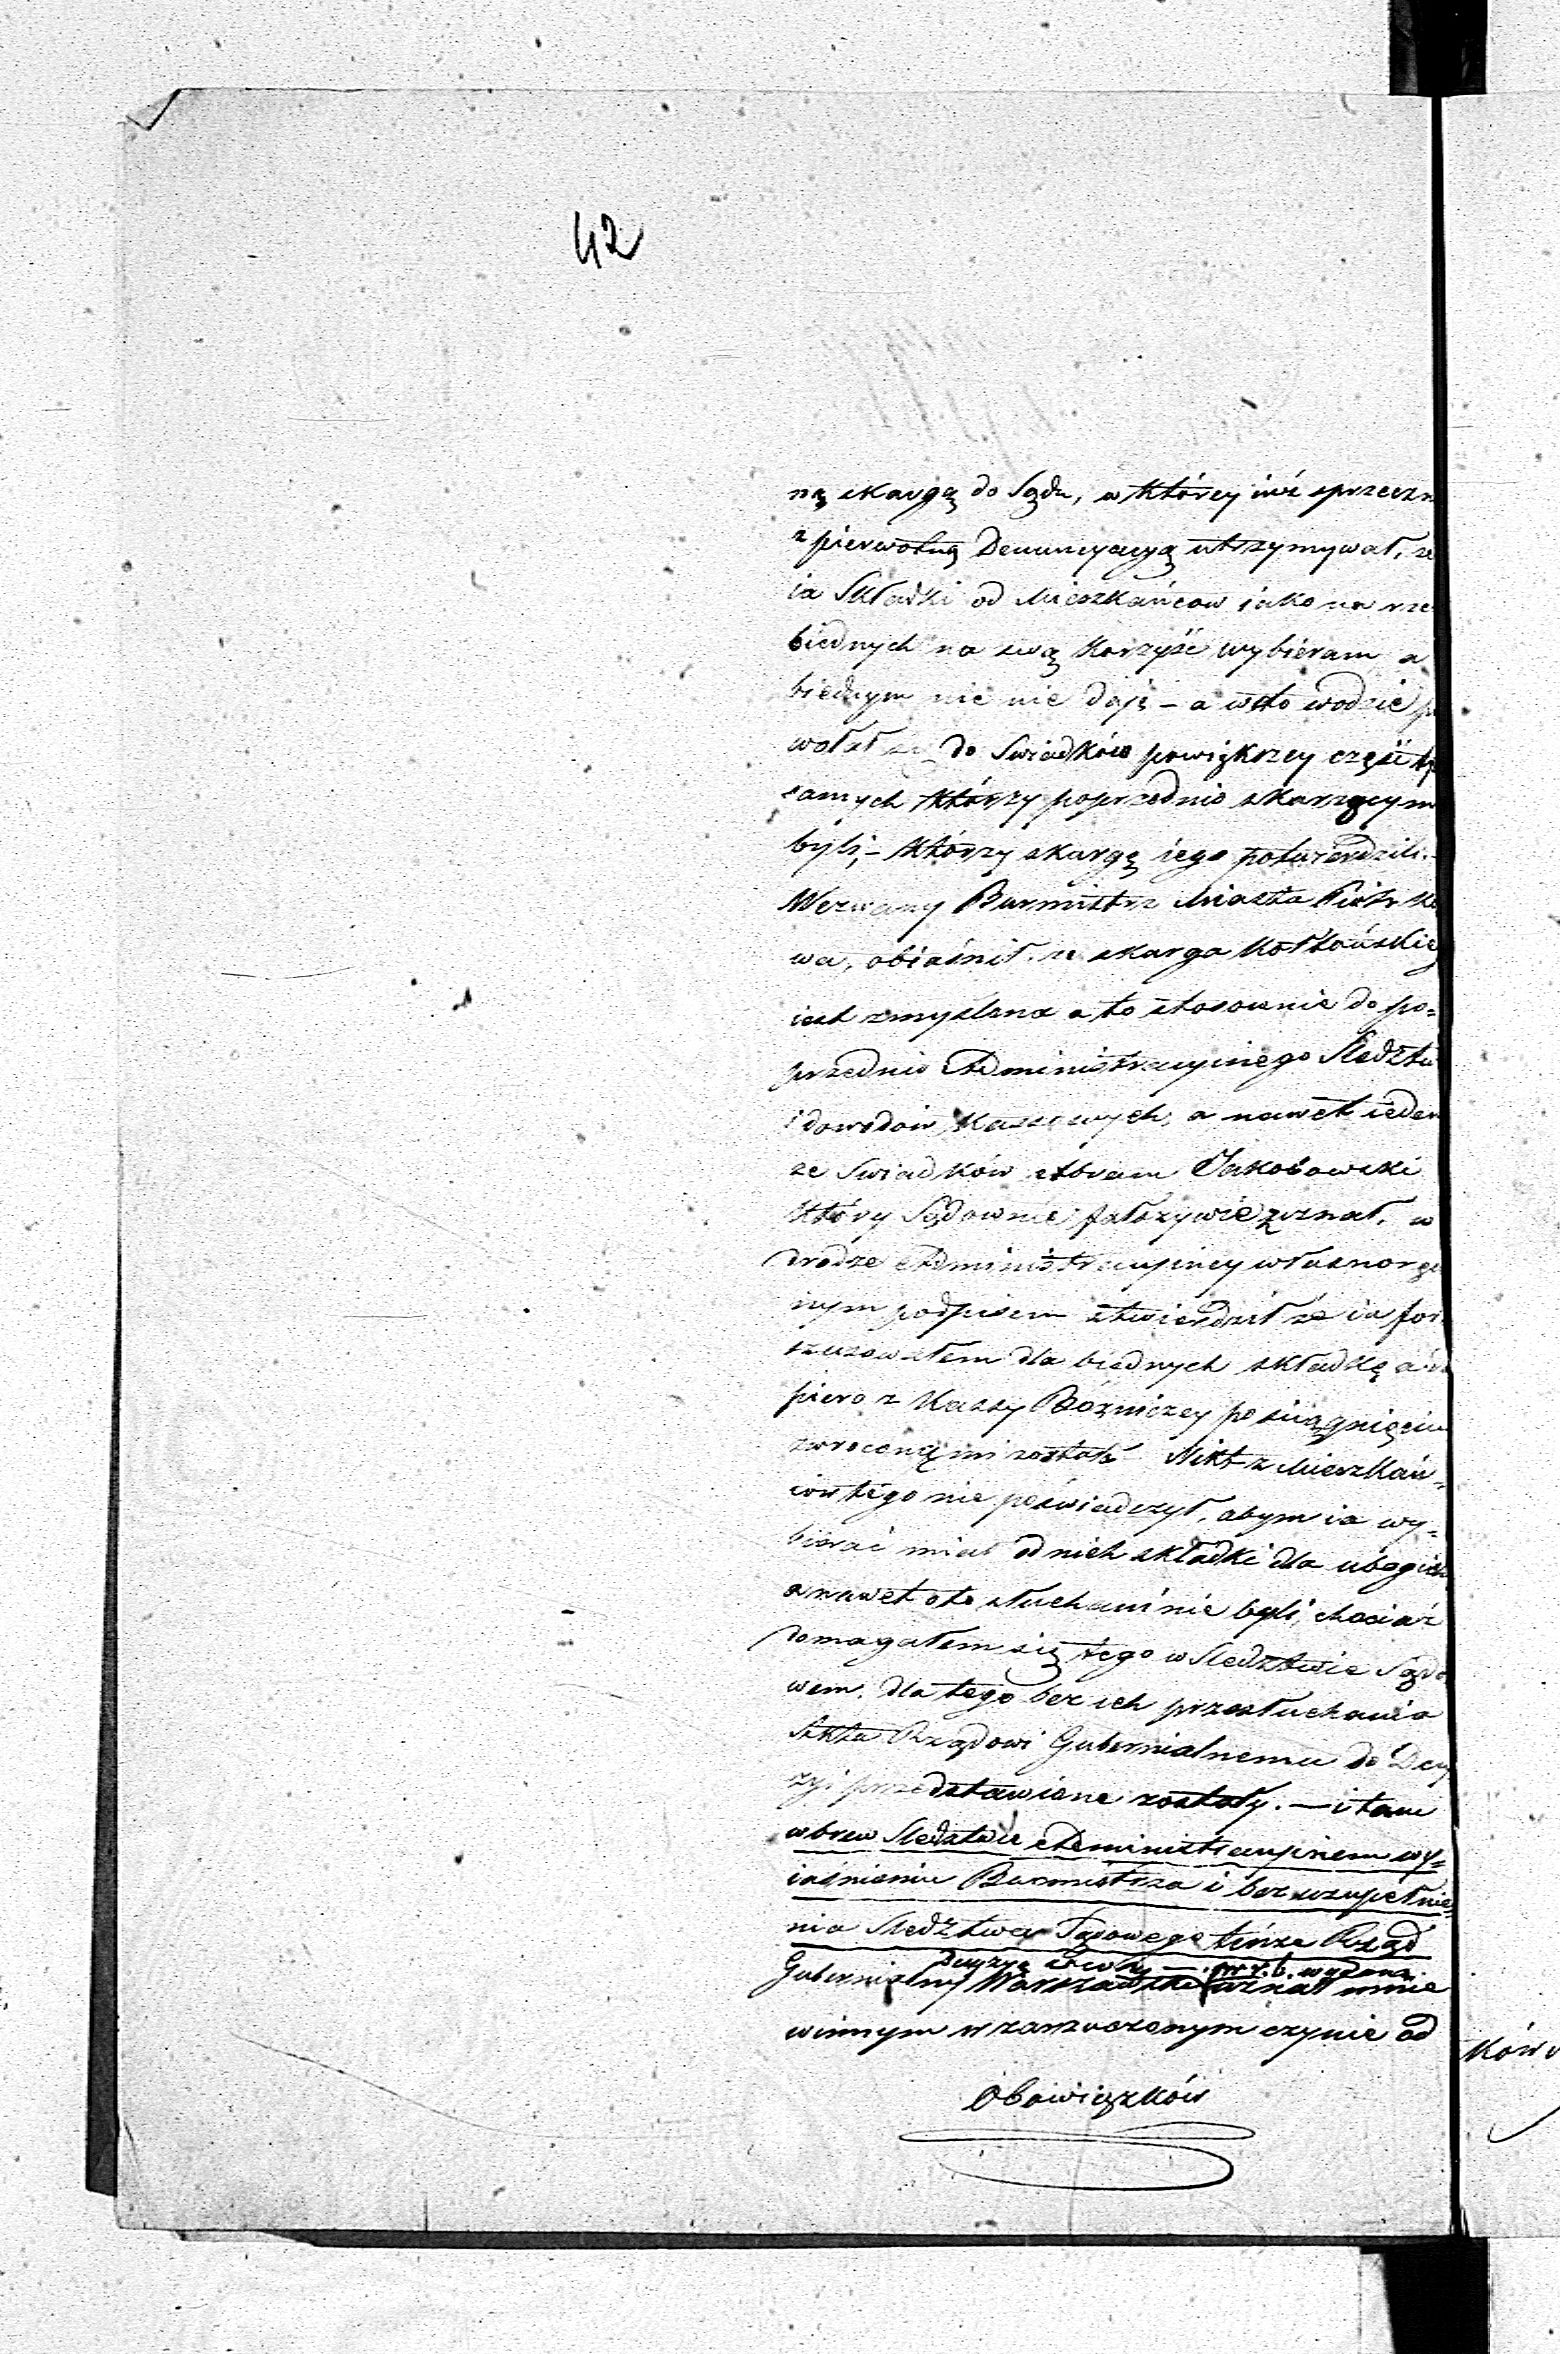 42
ną skargą do Sądu, w którey iuż sprzeczn
z pierwotną Denuncyacyą utrzymywał, że
ia Składki od Mieszkańcow iako na rze
biednych na swą korzyść wybieram a
biednym nic nie daję – a w do wodzie p
wołał do Swiadków powiększey części ty
samych którzy poprzednio skarżącymi
byli, – którzy skargę iego potwierdzili. –
Wezwany Burmistrz Miasta Piotrko
wa, obiaśnił, że skarga
iest zmyslona a to stosownie do po=
przednio Administracyinego Sledztw
i dowodów Kassowych, a nawet ieden
ze Swiadków Abram Jakobowski
który Sądownie fałszywie zeznał, w
drodze Administracyiney własnorę
nym podpisem stwierdził że ia for
szusowałem dla biednych składkę a do
piero z Kassy Bożniczey po sciągnięciu
zwroconą mi została Nikt z Mieszkań=
ców tego nie poświadczył, abym ia wy=
bierać miał od nich składki dla ubogich
a nawet oto słuchani nie byli, chociaż
domagałem się tego w Sledztwie Sądo
wem, dla tego bez ich przesłuchania
Akta Rządowi Gubernialnemu do Decy
zyi przedstawione zostały. – i tam
wbrew Sledztwu Administracyinem wy=
iaśnieniu Burmistrza i bez uzupełnie
nia Sledztwa Sądowego tenże Rząd
Decyzyą wydaną
Gubernialny Warszawski uznał mnie
winnym w zarzuconym czynie od
Obowiązków
ków